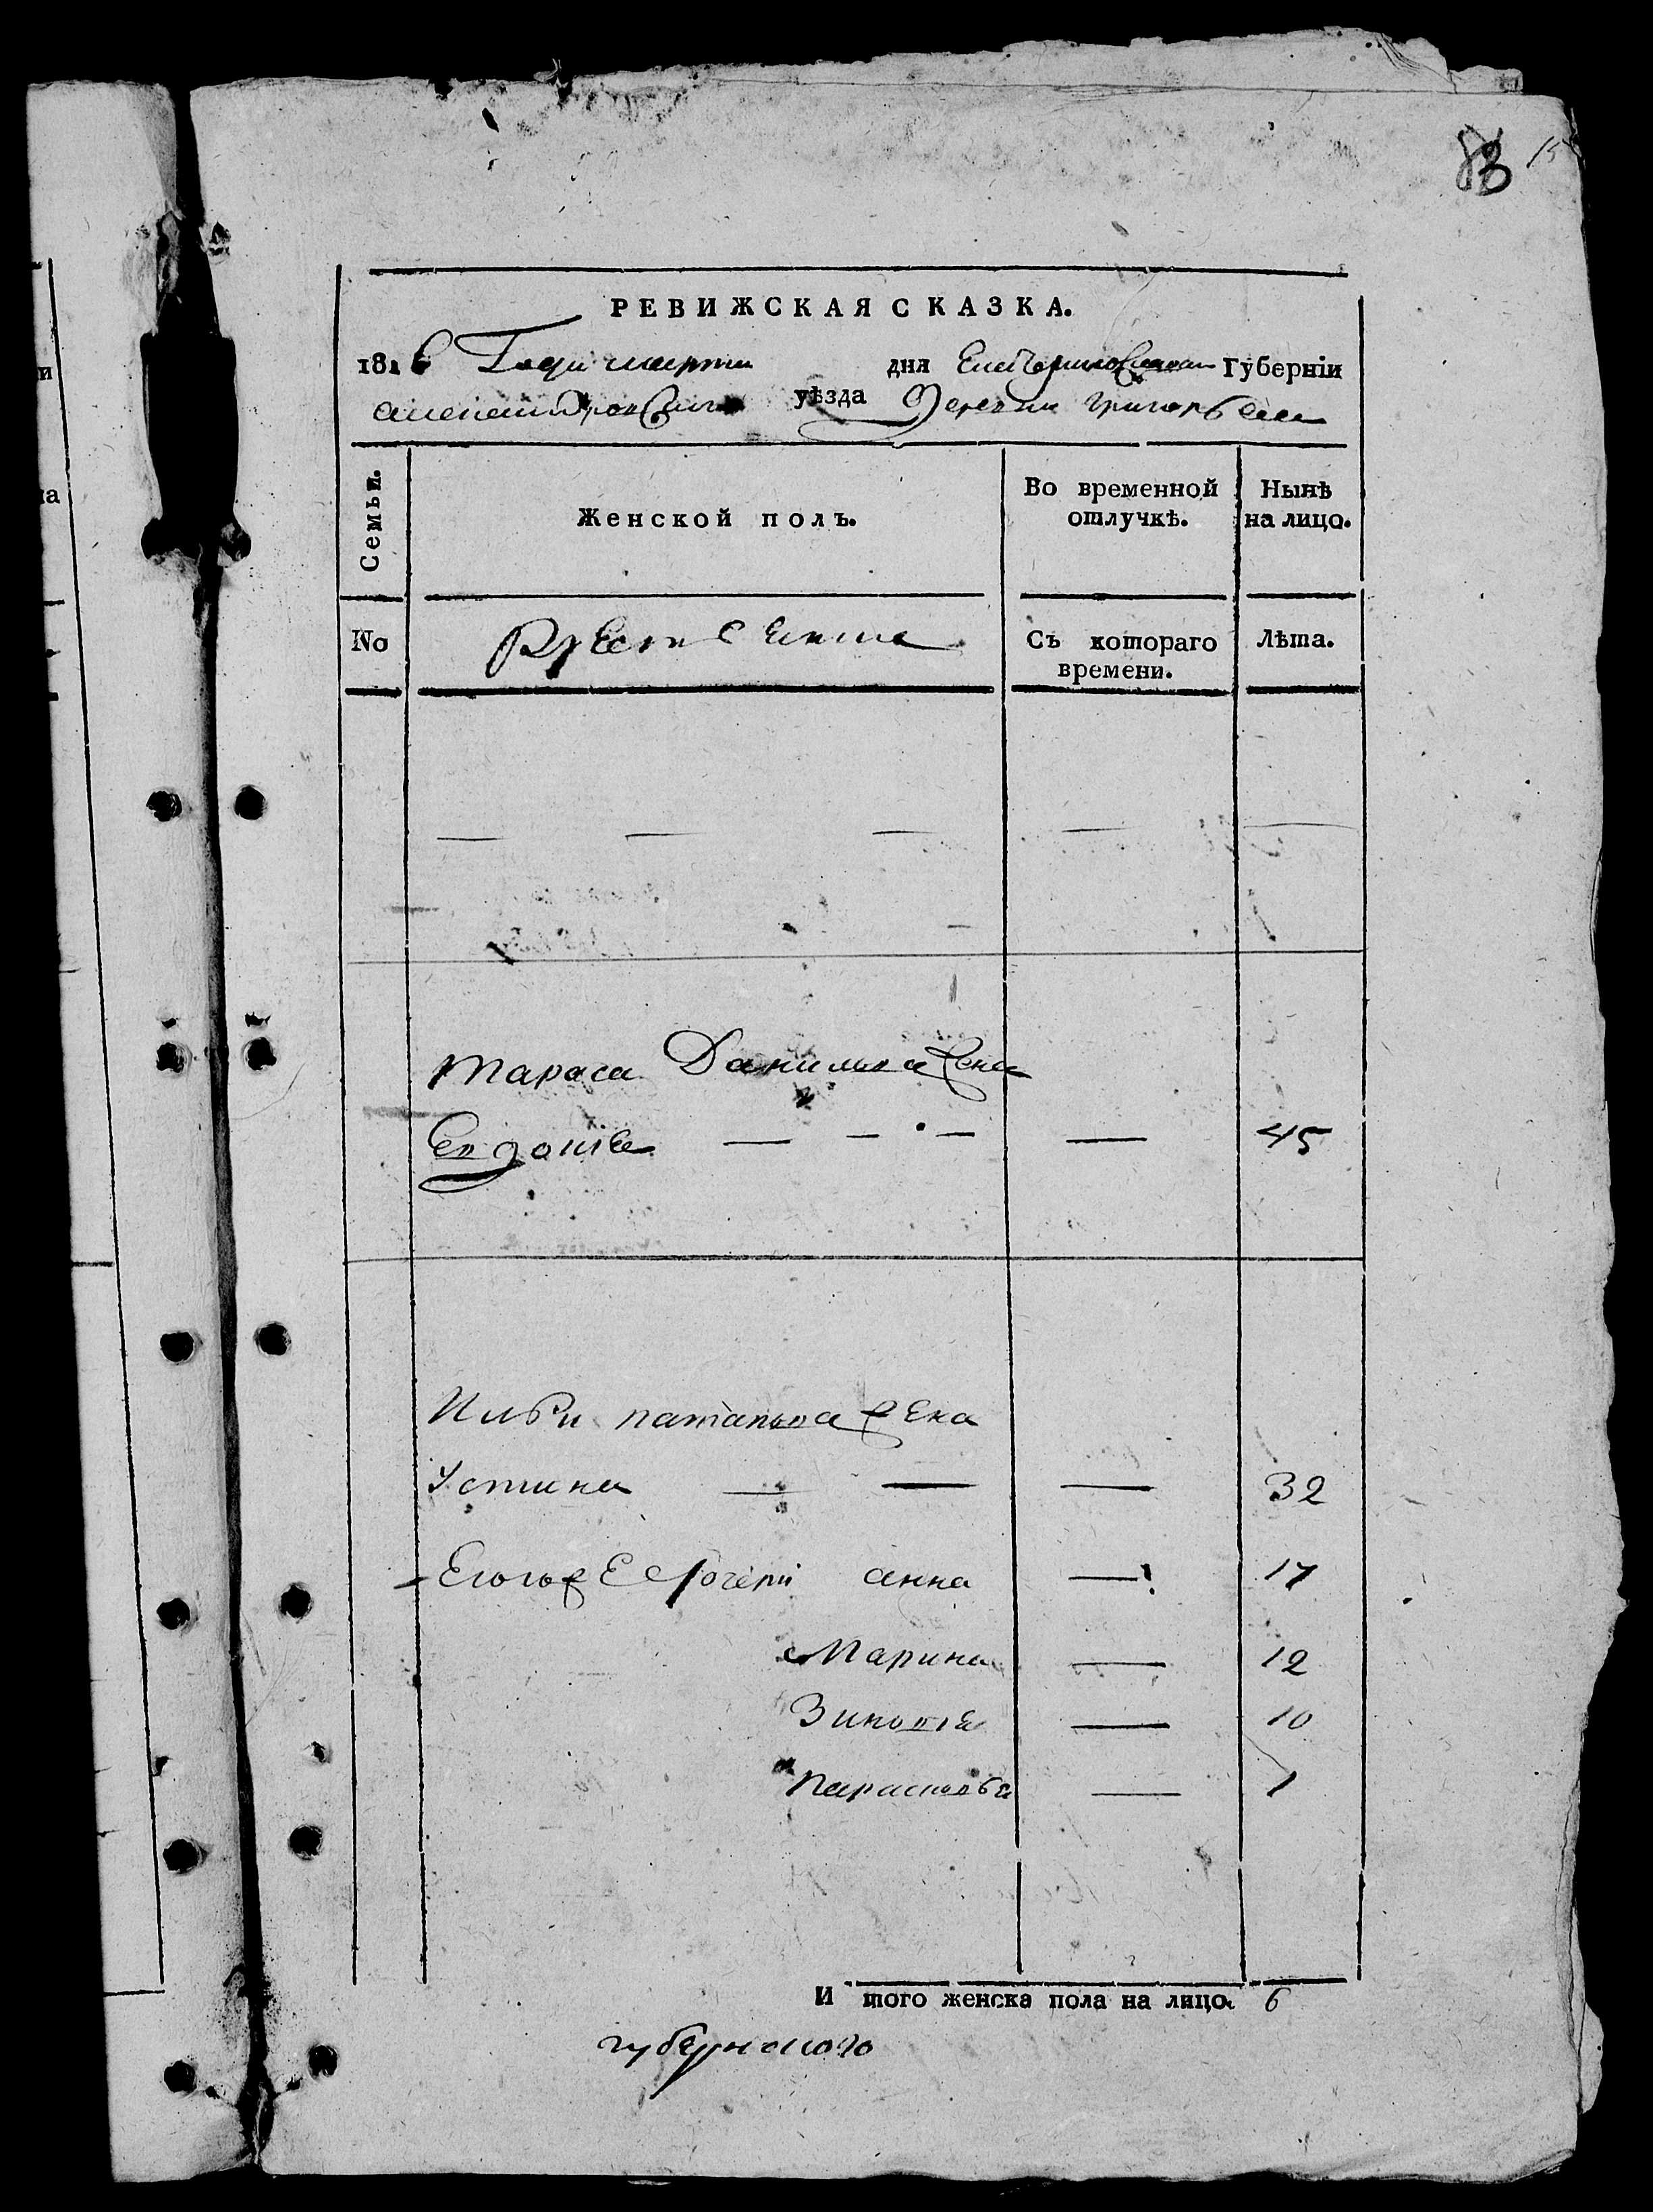 83 15
РЕВИЖСКАЯ СКАЗКА.
1816 Года марта дня Екатеринославской Губерніи
александровского уѣзда Деревни григорьевки
Семьи. Женской полъ. Во временной отлучкѣ. Нынѣ на лицо.
No Крестьяне Съ котораго времени. Лѣта.
Тараса Данилова жена
Евдокія — — — — 45
Ильи патапова жена
Устина — — — 32
Его же дочери анна — 17
Марина — 12
Зиновія — 10
Парасковья — 1
И того женска пола на лицо. 6
губернского